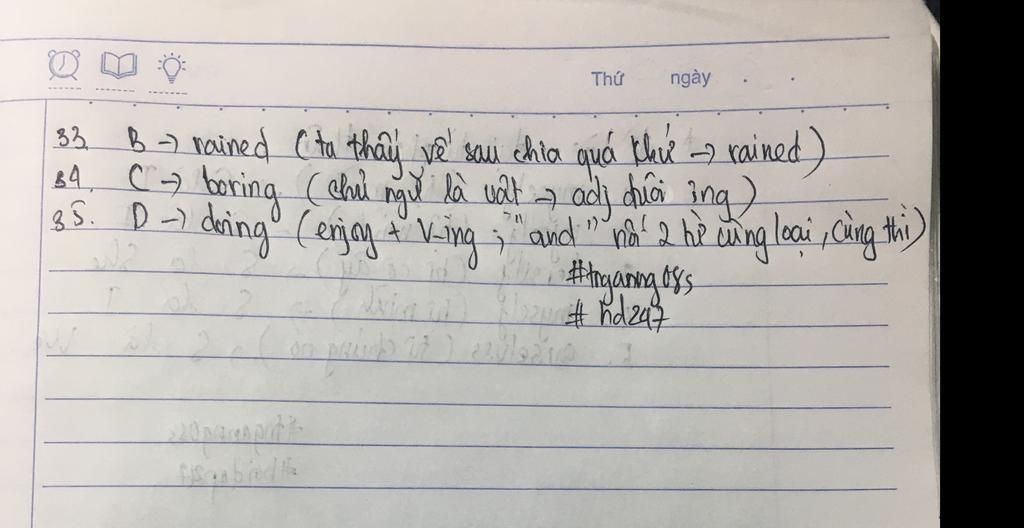 Thứ ngày . .
33. B → rained (ta thấy vế sau chia quá khứ → rained)
34. C → boring (chủ ngữ là vật → adj đuôi ing)
35. D → doing (enjoy + V-ing ; "and" nối 2 từ cùng loại, cùng thì)
#tnganng08s
# hd247